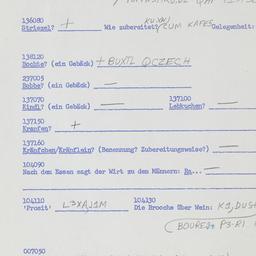 136080
Striezel? + Wie zubereitet? ZUM KAFEE Gelegenheit:
138120
Bochte? (ein Gebäck) + BUXTL QCZECH
237005
Bobbe? (ein Gebäck) —
137070 137100
Kindl? (ein Gebäck) — Lebkuchen? —
137150
Krapfen? +
137160
Kräpfchen/Kräpflein? (Benennung? Zubereitungsweise?) —
104090
Nach dem Essen sagt der Wirt zu den Männern: Ra... —
104110 104130
'Prosit' L3XAJ1M Die Brosche über Wein:
P3-R1
007050